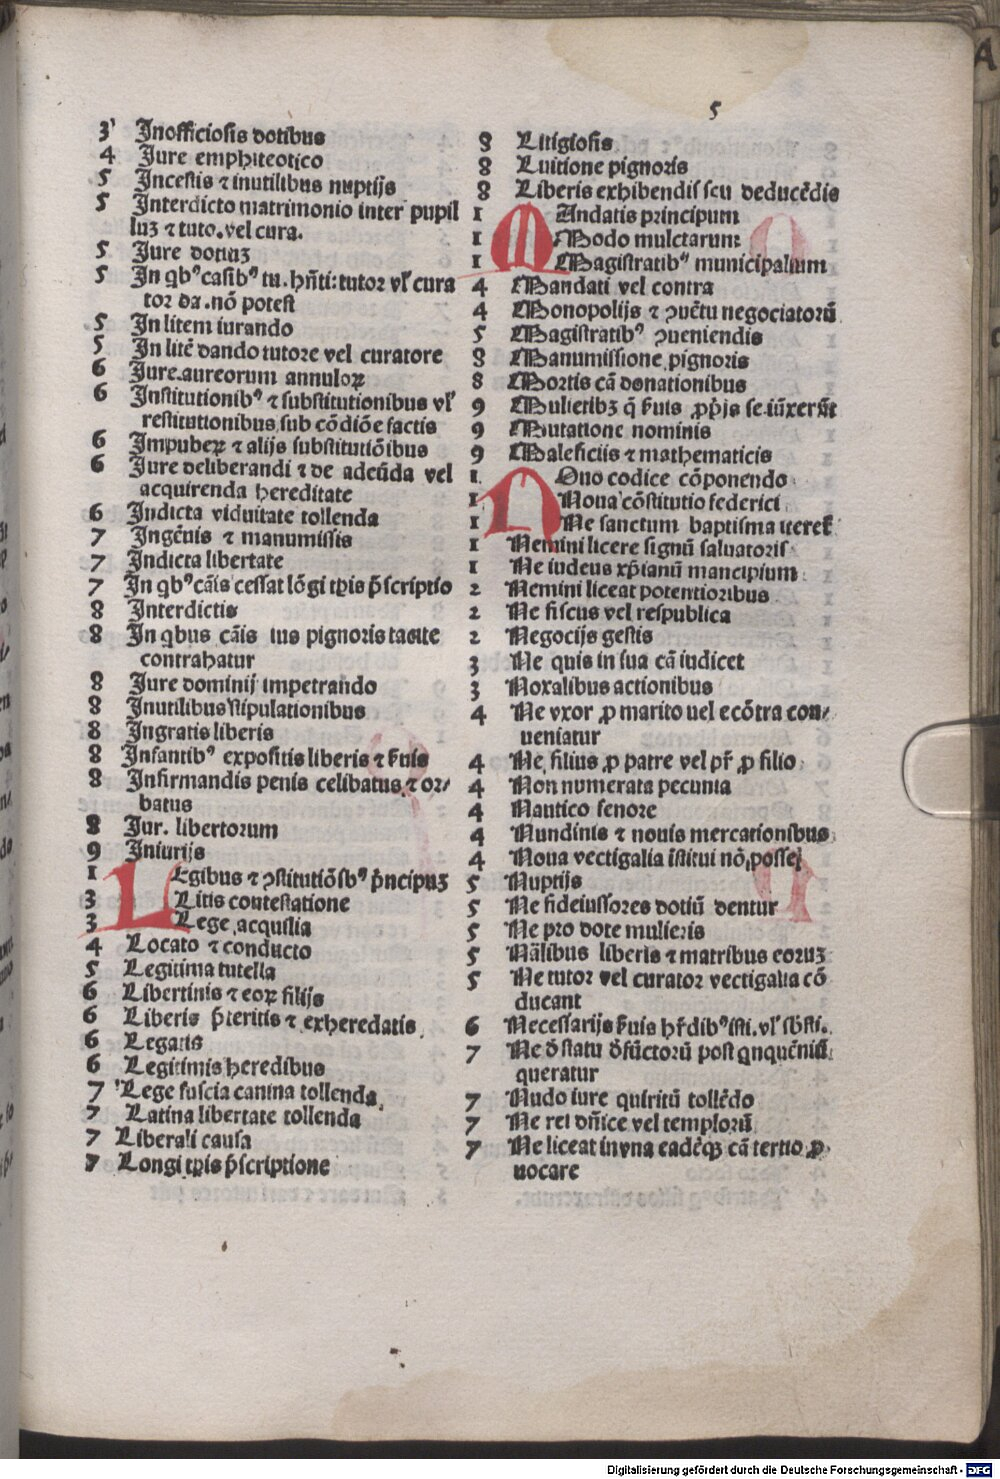 5
3 Inofficiosis dotibus
4 Jure emphiteotico
5 Incestis ⁊ inutilibus nuptijs
5 Interdicto matrimonio inter pupil
luꝫ ⁊ tuto. vel cura.
5 Jure dotiuꝫ
5 In qbꝰ casibꝰ tu. hñti: tutor vl' cura
tor da. nõ potest
5 In litem iurando
5 In litẽ dando tutore vel curatore
6 Jure aureorum annuloꝝ
6 Institutionibꝰ ⁊ substitutionibus vl'
restitutionibus sub cõdiõe factis
6 Impubeꝝ ⁊ alijs substitutiõibus
6 Jure deliberandi ⁊ de adeũda vel
acquirenda hereditate
6 Indicta viduitate tollenda
7 Ingẽuis ⁊ manumissis
7 Indicta libertate
7 In qbꝰ cãis cessat lõgi tꝑis p̃scriptio
8 Interdictis
8 In qbus cãis ius pignoris tacite
contrahatur
8 Jure dominij impetrando
8 Inutilibus stipulationibus
8 Ingratis liberis
8 Infantibꝰ expositis liberis ⁊ ẜuis
8 Infirmandis penis celibatus ⁊ or/
batus
8 Jur. libertorum
9 Iniurijs
1 LEgibus ⁊ ꝯstitutiõibꝰ p̃ncipuꝫ
3 Litis contestatione
3 Lege acquilia
4 Locato ⁊ conducto
5 Legitima tutella
6 Libertinis ⁊ eoꝝ filijs
6 Liberis p̃teritis ⁊ exheredatis
6 Legatis
6 Legitimis heredibus
7 Lege fuscia canina tollenda
7 Latina libertate tollenda
7 Liberali causa
7 Longi tꝑis p̃scriptione
8 Litigiosis
8 Luitione pignoris
8 Liberis exhibendis seu deducẽdis
1 MAndatis principum
1 Modo mulctarum
1 Magistratibꝰ municipalium
4 Mandati vel contra
4 Monopolijs ⁊ ꝯuẽtu negociatorũ
5 Magistratibꝰ ꝯueniendis
8 Manumissione pignoris
8 Mortis cã donationibus
9 Mulieribꝫ q̃ ẜuis ꝓp̃js se iũxerũt
9 Mutatione nominis
9 Maleficiis ⁊ mathematicis
1 NOuo codice cõponendo
1 Noua cõstitutio federici
1 Ne sanctum baptisma iteret᷑
1 Nemini licere signũ saluatoris
1 Ne iudeus xp̃ianũ mancipium
2 Nemini liceat potentioribus
2 Ne fiscus vel respublica
2 Negocijs gestis
3 Ne quis in sua cã iudicet
3 Noxalibus actionibus
4 Ne vxor ꝓ marito uel ecõtra con/
ueniatur
4 Ne filius ꝓ patre vel pr̃ ꝓ filio
4 Non numerata pecunia
4 Nautico fenore
4 Nundinis ⁊ nouis mercationibus
4 Noua vectigalia ĩstitui nõ posse
5 Nuptijs
5 Ne fideiussores dotiũ dentur
5 Ne pro dote mulieris
5 Nãlibus liberis ⁊ matribus eoruꝫ
5 Ne tutor vel curator vectigalia cõ
ducant
6 Necessarijs ẜuis hr̃dibꝰ ĩsti. vl' sb̃sti.
7 Ne d̃ statu d̃fũctorũ post qnquẽniũ
queratur
7 Nudo iure quiritũ tollẽdo
7 Ne rei dñice vel templorũ
7 Ne liceat in vna eadẽqꝫ cã tertio ꝓ
uocare
Digitalisierung gefördert durch die Deutsche Forschungsgemeinschaft - DFG